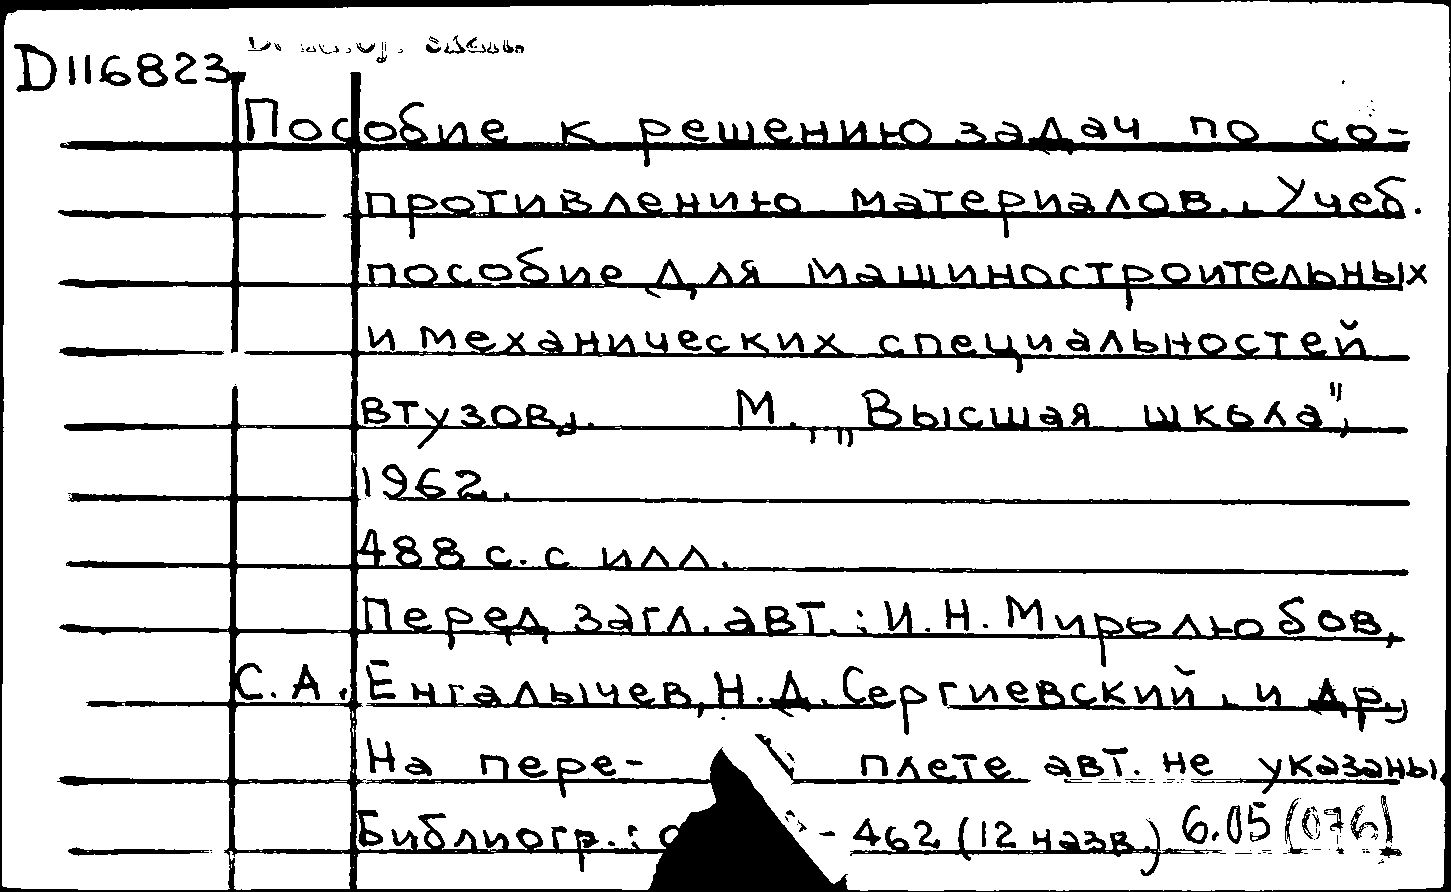 D116823
Пособие к решению задач по со-
противлению материалов. Учеб.
пособие для машиностроительных
и механических специальностей
втузов. М., „Высшая школа",
1962.
488 с. с илл.
Перед загл. авт.: И.Н. Миролюбов,
С.А. Енгалычев, Н.Д. Сергиевский и др.
На пере- плете авт. не указаны
Библиогр.: - 462 (12 назв.) 6.05 (076)